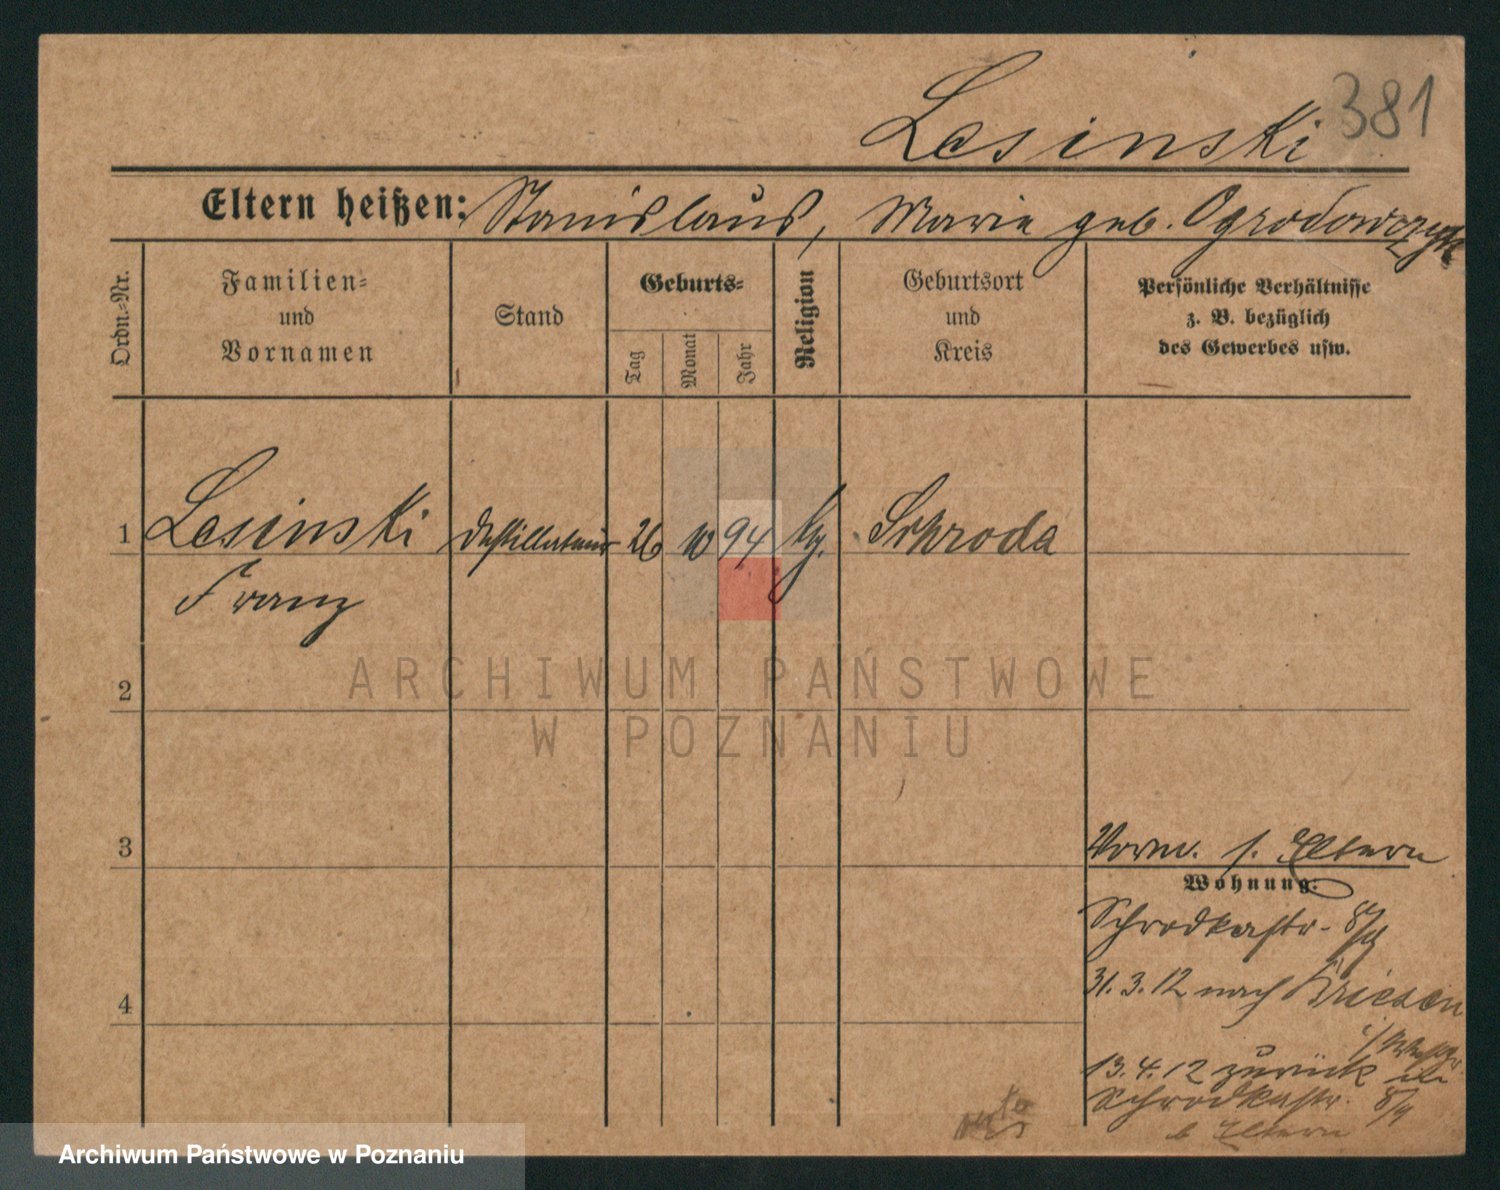 381
Lesinski
Eltern heißen: Stanislaus, Marie geb. Ogrodowczyk
Ordn.=Nr.
Familien=
und
Vornamen
Stand
Geburts=
Tag
Monat
Jahr
Religion
Geburtsort
und
Kreis
Persönliche Verhältnisse
z. B. bezüglich
des Gewerbes usw.
1 Lesinski 26 10 94 Schroda
Franz
2
ARCHIWUM PAŃSTWOWE
W POZNANIU
3
Vorm. s. Eltern
Wohnung:
Schrodkastr.
31.3.12 nach Briesen
13.4.12 zurück
Schrodkastr.
b Eltern
4
Archiwum Państwowe w Poznaniu